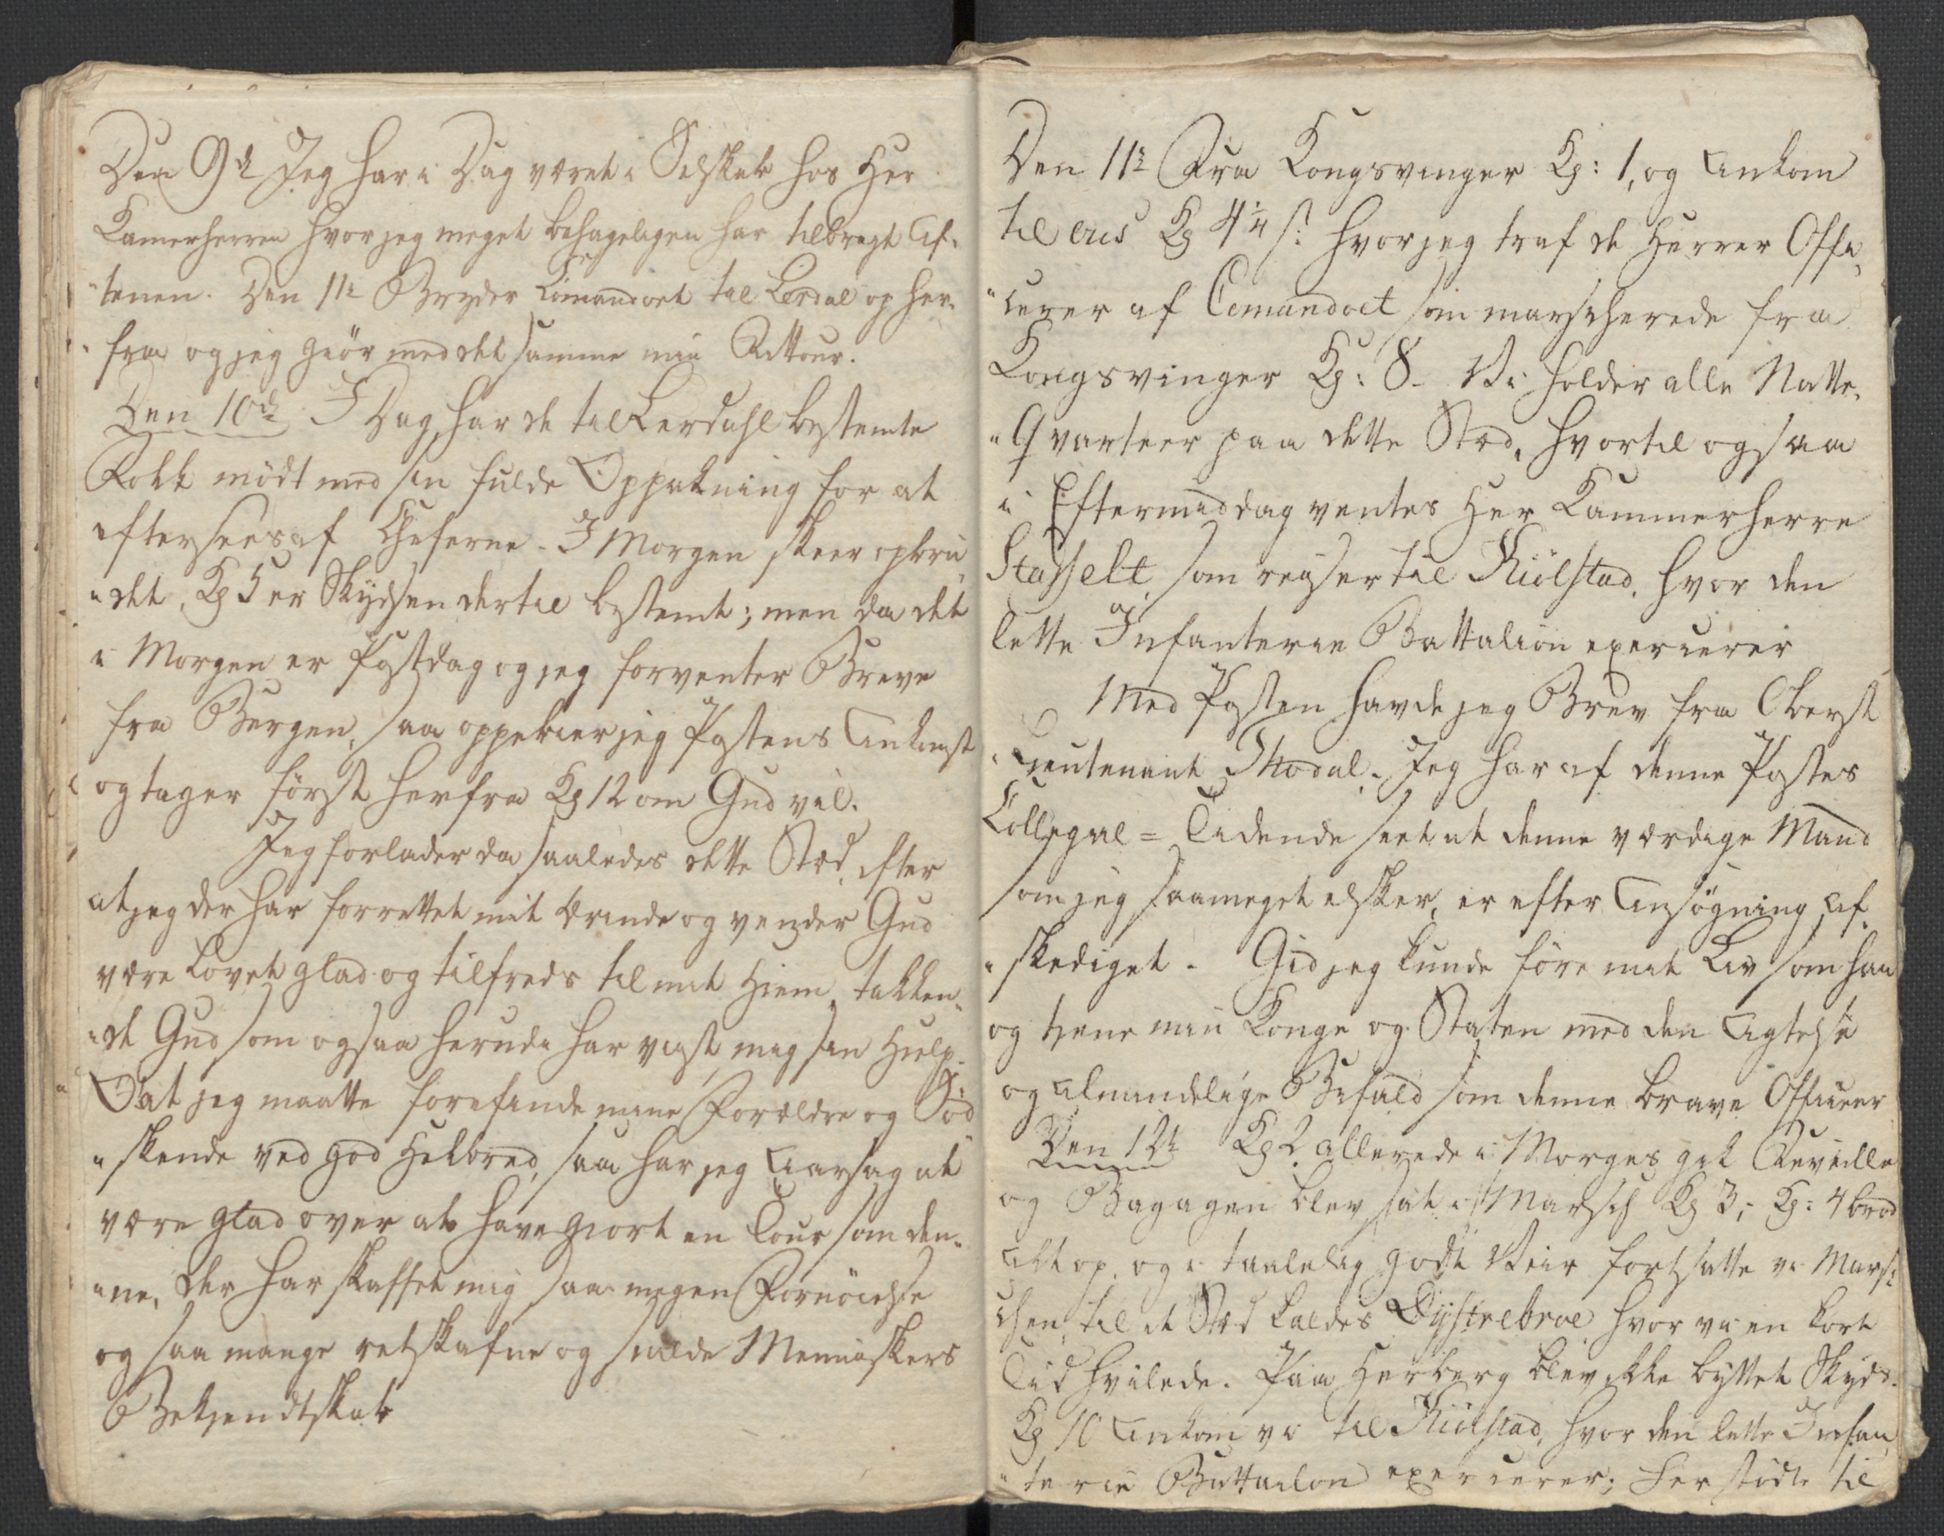 Den 9de Jeg har i Dag været i Selskab hos Her
Kamerherren hvor jeg meget behageligen har tilbragt Af-
tenen. Den 11te Bryder Comandoet til Lerdal op her-
fra og jeg giör med det samme min Rettour.
Den 10de I Dag har de til Lerdahl bestemte
Folk mödt med sin fulde Oppakning for at
efterseesaf Cheferne. I Morgen skeer opbru-
det, Kl 5 er Skydsen dertil bestemt; men da det
i Morgen er Postdag og jeg forventer Breve
fra Bergen, saa oppebier jeg Postens Ankomst
og tager först herfra Kl 12 om Gud vil.
Jeg forlader da saaledes dette Stæd, efter
at jeg der har forrettet mit Ærinde og vender Gud
være Lovet glad og tilfreds til mit Hiem, takken-
de Gud som ogsaa herude har viist mig sin Hielp.
O at jeg maatte forefinde mine Forældre og Sød-
skende ved god Helbred, saa har jeg Aarsag at
være glad over at have giort en Tour som den-
ne, der har skaffet mig saa megen Fornöielse
og saa mange retskafne og snilde Menniskers
Bekjendtskab
Den 11te Fra Kongsvinger Kl: 1, og Ankom
til Kl 4 1/4 hvor jeg traf de Herrer Offi-
cerer af Comandoet som marscherede fra
Kongsvinger Kl: 8. Vi holder alle Natte-
Qvarteer paa dette Stæd, hvortil ogsaa
i Eftermiddag ventes Her Kammerherre
Stafselt, som reiser til Kiölstad, hvor den
lette Infanterie Battalion exercerer
Med Posten havde jeg Brev fra Oberst
Lieutenant Thodal. Jeg har af denne Postes
Collegial=Tidende seet at denne værdige Mand
som jeg saameget elsker, er efter Ansögning af-
skediget. Gid jeg kunde före mit Liv som han
og tjene min Konge og Staten med den Agtelse
og almindelige Bifald som denne brave Officeer
Den 12te Kl 2 allerede i Morges gik Reveille
og Bagagen blev sat i Marsch Kl 3, Kl: 4 bröd
alt op, og i taalelig godt Veir fortsatte vi Mars-
chen, til et Stæd kaldes Dystrebroe hvor vi en kort
Tid hvilede. Paa Herberg blev ikke byttet Skyds.
Kl 10 Ankom vi til Kiölstad, hvor den lette Infan
terie Battailon exercerer; Her stödte til